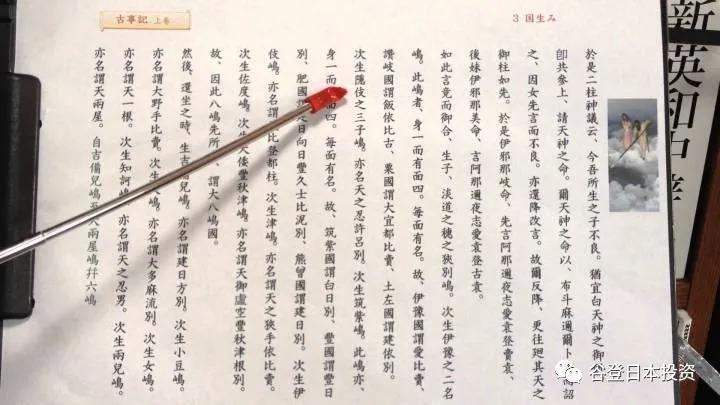 古事記 上巻
3 国生み
於是二柱神議云、今吾所生之子不良。猶宜白天神之御
卽共參上、請天神之命。爾天神之命以、布斗麻邇爾卜
之、因女先言而不良。亦還降改言。故爾反降、更往廻其天之
御柱如先。於是伊邪那岐命、先言阿那邇夜志愛袁登賣袁、
後妹伊邪那美命、言阿那邇夜志愛袁登古袁。
如此言竟而御合、生子、淡道之穗之狹別嶋。次生伊豫之二名
嶋。此嶋者、身一而有面四。每面有名。故、伊豫國謂愛比賣、
讚岐國謂飯依比古、粟國謂大宜都比賣、土左國謂建依別。
次生隱伎之三子嶋。亦名天之忍許呂別。次生筑紫嶋。此嶋亦、
身一而面四。每面有名。故、筑紫國謂白日別、豐國謂豐日
別、肥國日向日豐久士比泥別、熊曾國謂建日別。次生伊
伎嶋。亦名謂比登都柱。次生津嶋。亦名謂天之狹手依比賣。
次生佐度嶋。次生大倭豐秋津嶋。亦名謂天御虛空豐秋津根別。
故、因此八嶋先所、謂大八嶋國。
然後、還坐之時、生吉備兒嶋。亦名謂建日方別。次生小豆嶋。
亦名謂大野手比賣。次生嶋。亦名謂大多麻流別。次生女嶋。
亦名謂天一根。次生知訶嶋。亦名謂天之忍男。次生兩兒嶋。
亦名謂天兩屋。自吉備兒嶋至天兩屋嶋幷六嶋
新英和中
谷登日本投资